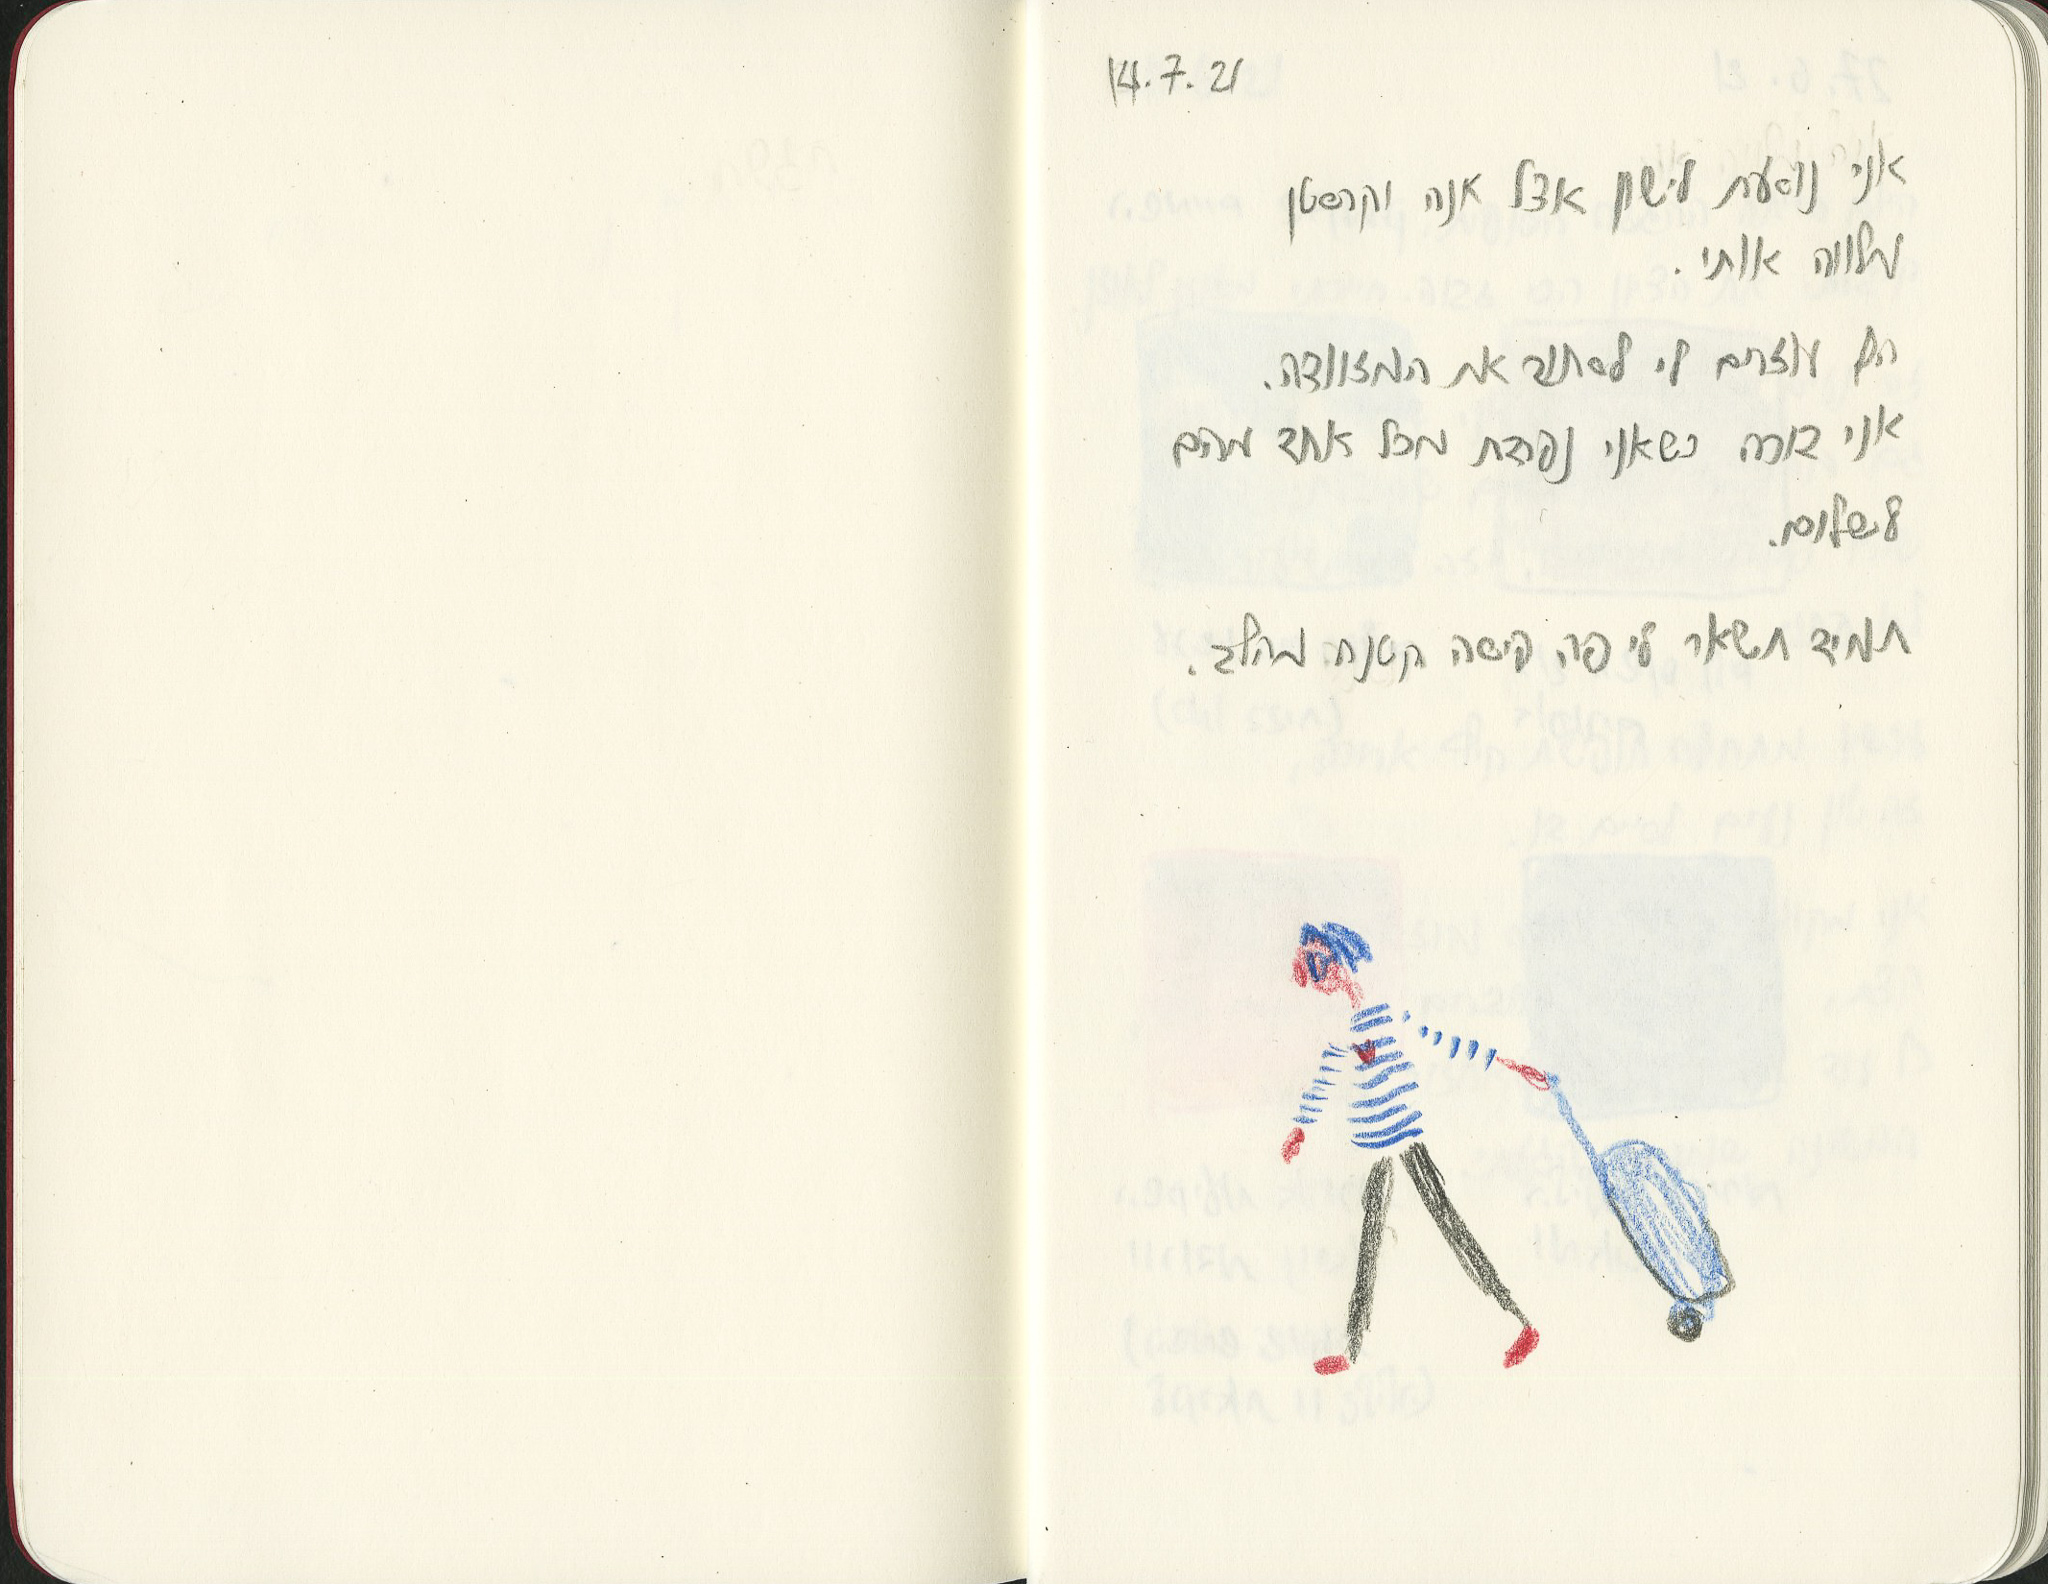 14.7.21
אני נוסעת לישון אצל אנה וקרסטן
מלווה אותי.
הם עוזרים לי לסחוב את המזוודה.
אני בוכה כשאני נפרדת מכל אחד מהם
לשלום.
תמיד תשאר לי פה פיסה קטנה מהלב.